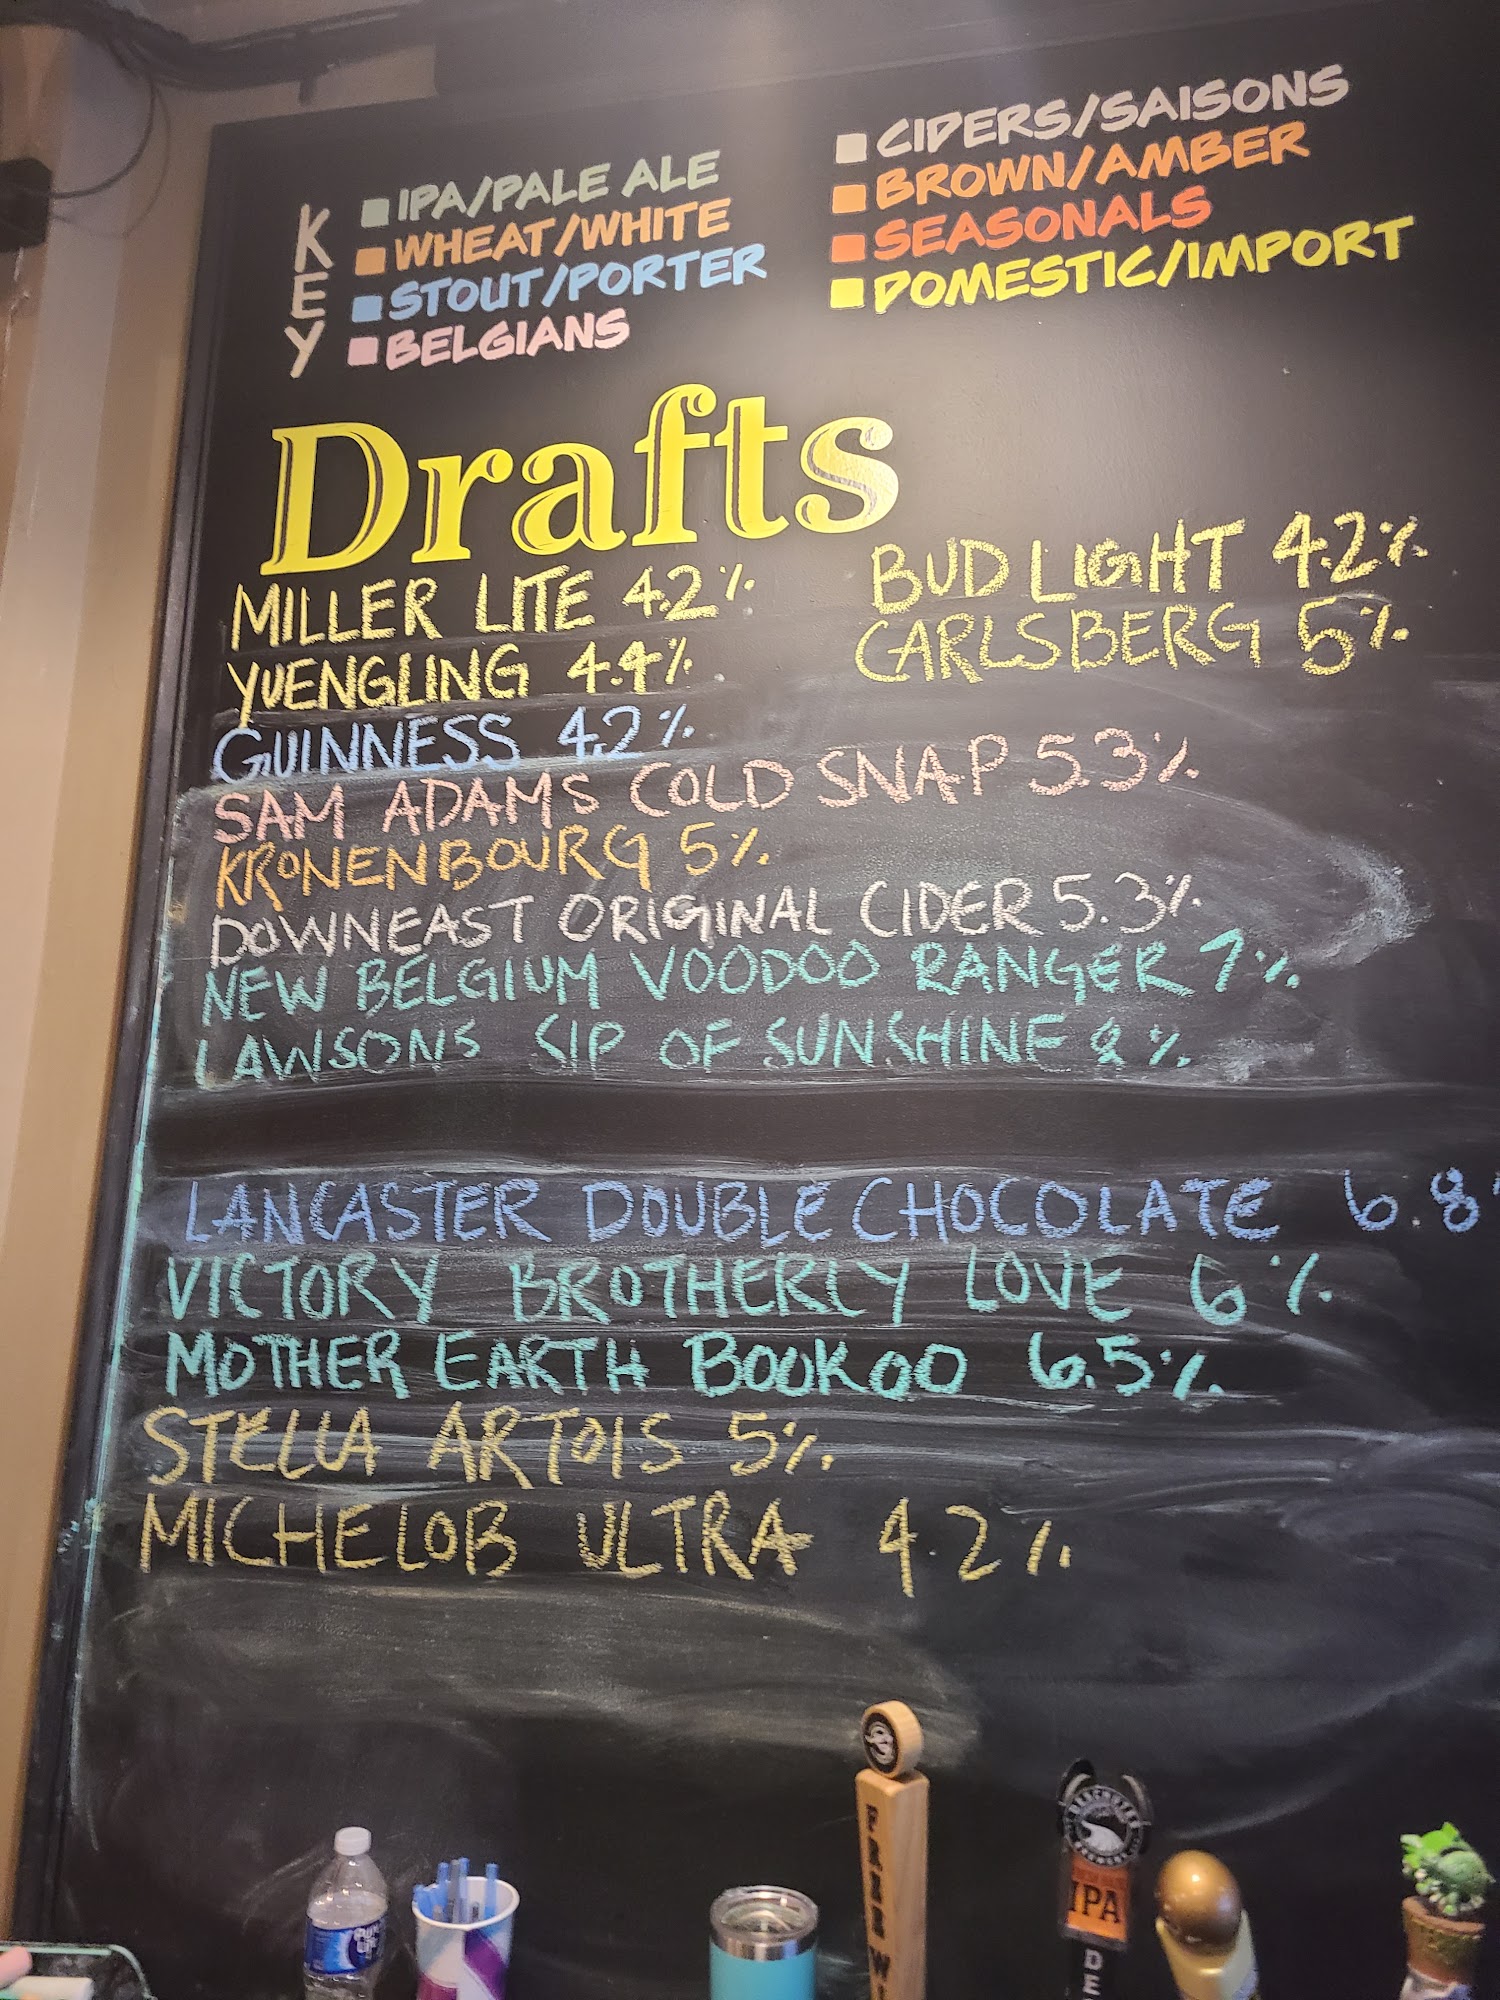 KEY
IPA/PALE ALE
WHEAT/WHITE
STOUT/PORTER
BELGIANS
CIDERS/SAISONS
BROWN/AMBER
SEASONALS
DOMESTIC/IMPORT
Drafts
MILLER LITE 4.2%
YUENGLING 4.4%
BUD LIGHT 4.2%
CARLSBERG 5%
GUINNESS 4.2%
SAM ADAMS COLD SNAP 5.3%
KRONENBOURG 5%
DOWNEAST ORIGINAL CIDER 5.3%
NEW BELGIUM VOODOO RANGER 7%
LAWSONS SIP OF SUNSHINE 8%
LANCASTER DOUBLE CHOCOLATE 6.8
VICTORY BROTHERLY LOVE 6%
MOTHER EARTH BOOKOO 6.5%
STELLA ARTOIS 5%
MICHELOB ULTRA 4.2%
FREE W
DESCHUTES
BREWERY
IPA
DE